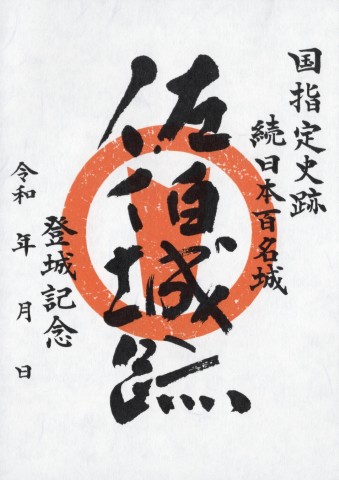 国指定史跡
続日本百名城
佐伯城跡
登城記念
令和　年　月　日